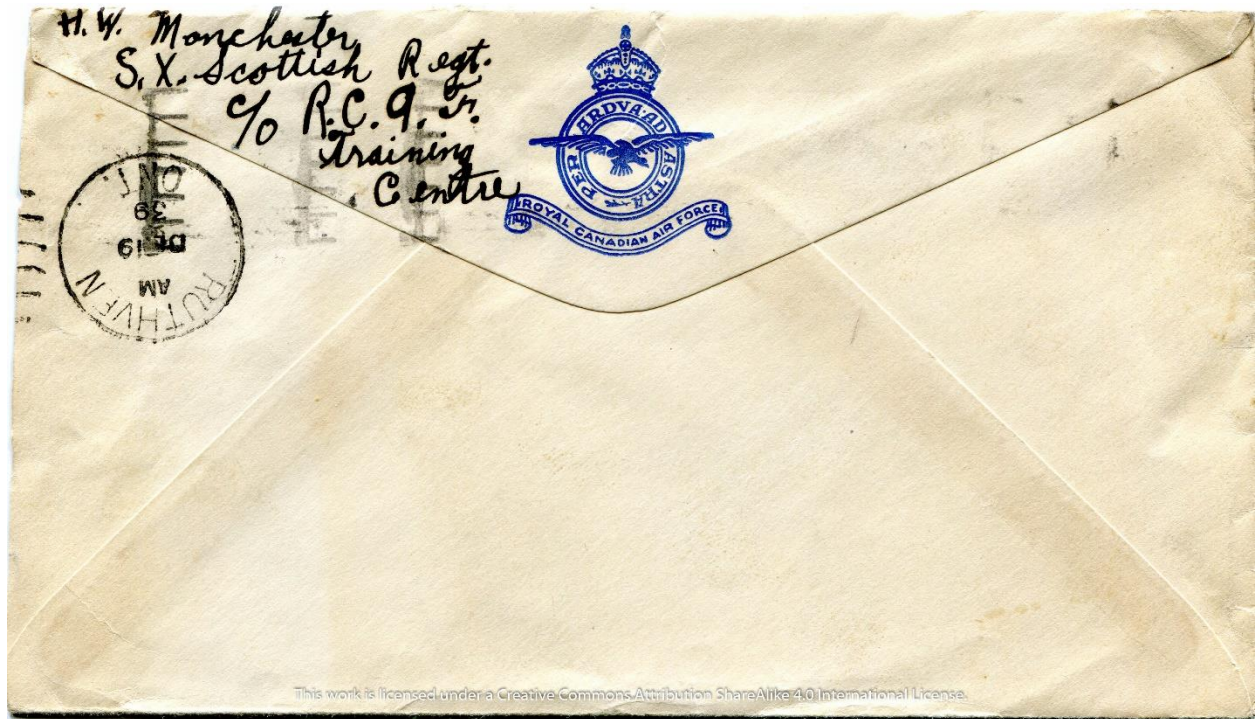 H. W. Manchester
S. X. Scottish Regt.
c/o R.C.A.F.
Training
Centre
PER ARDVA AD ASTRA
ROYAL CANADIAN AIR FORCE
RUTHVEN
AM
DE 19
39
ONT.
This work is licensed under a Creative Commons Attribution ShareAlike 4.0 International License.